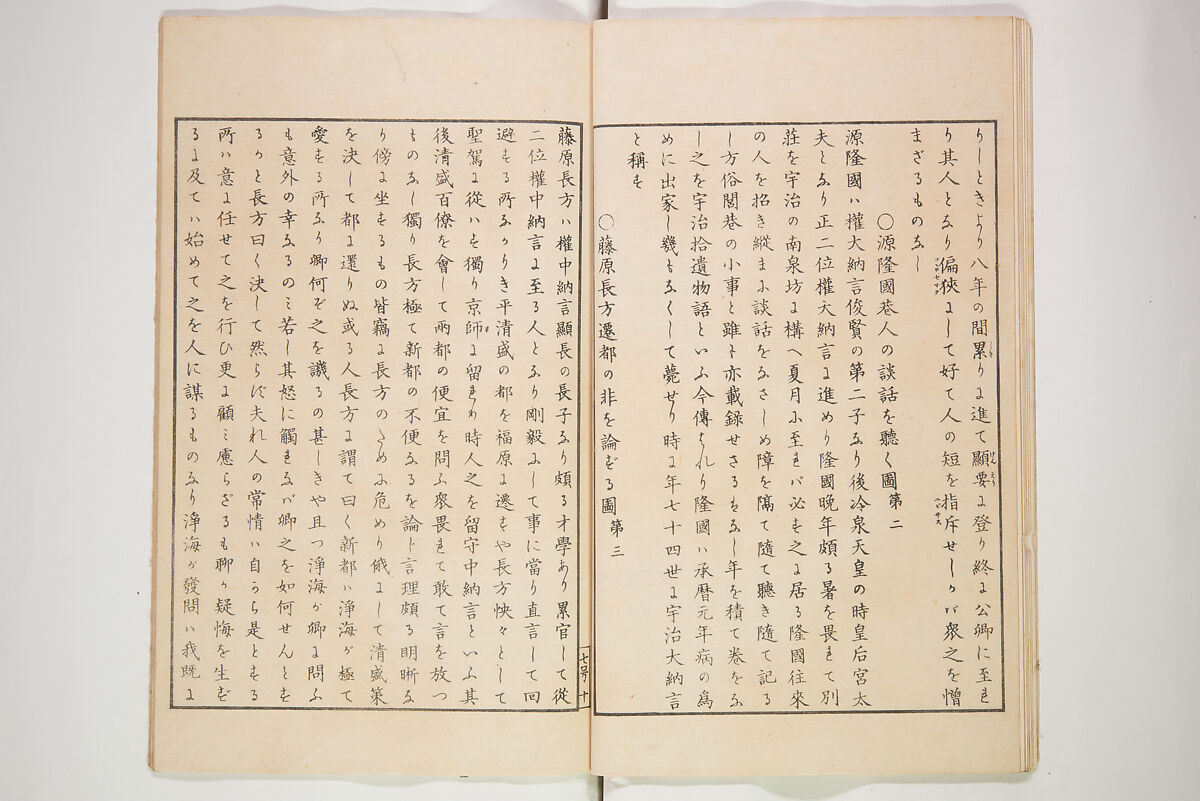 りしときより八年の間累りに進て顯要に登り終に公卿に至れ
り其人となり偏狹にして好て人の短を指斥せしかバ衆之を憎
まざるものなし
〇源隆國巷人の談話を聽く圖第二
源隆國ハ權大納言俊賢の第二子なり後冷泉天皇の時皇后宮太
夫となり正二位權大納言に進めり隆國晩年頗る暑を畏れて別
莊を宇治の南泉坊に構へ夏月に至れバ必ず之に居る隆國往來
の人を招き縱まに談話をなさしめ障を隔て隨て聽き隨て記る
し方俗閭巷の小事と雖ド亦載録せさるなし年を積て卷をな
し之を宇治拾遺物語といふ今傳はれり隆國ハ承暦元年病の爲
めに出家し幾もなくして薨せり時に年七十四世に宇治大納言
と稱す
〇藤原長方遷都の非を論ずる圖第三
七号 十
藤原長方ハ權中納言顯長の長子なり頗る才學あり累官して從
二位權中納言に至る人となり剛毅にして事に當り直言して回
避する所なかりき平清盛の都を福原に遷すや長方怏々として
聖駕に從ハず獨り京師に留まれり時人之を留守中納言といふ其
後清盛百僚を會して兩都の便宜を問ふ衆畏れて敢て言を放つ
ものなし獨り長方極て新都の不便なるを論ド言理頗る明晰な
り傍に坐するもの皆竊に長方のために危めり俄にして清盛策
を決して都に還りぬ或る人長方に謂て曰く新都ハ浄海が極て
愛する所なり卿何ぞ之を譏るの甚しきや且つ浄海が卿に問ふ
も意外の幸なるのミ若し其怒に觸れなバ卿之を如何せんとす
るかと長方曰く決して然らず夫れ人の常情ハ自から是とする
所ハ意に任せて之を行ひ更に顧ミ慮らざるも聊か疑悔を生ず
るに及てハ始めて之を人に謀るものなり浄海が發問ハ我既に